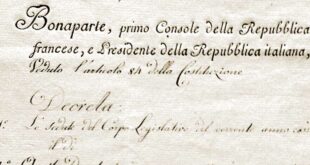 Bonaparte, primo Console della Repubblica
francese, e Presidente della Repubblica italiana,
Veduto l'articolo 84 della Costituzione
Decreta:
1.° Le sedute del Corpo Legislativo del corrente anno
il dì